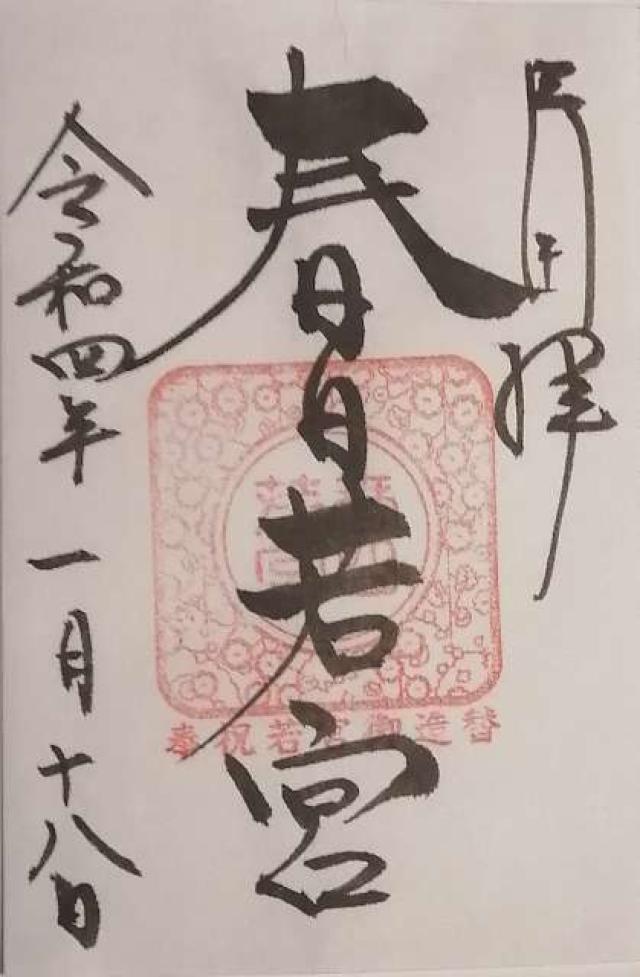 拝
春日若宮
奉祝若宮御造替
令和四年一月十八日